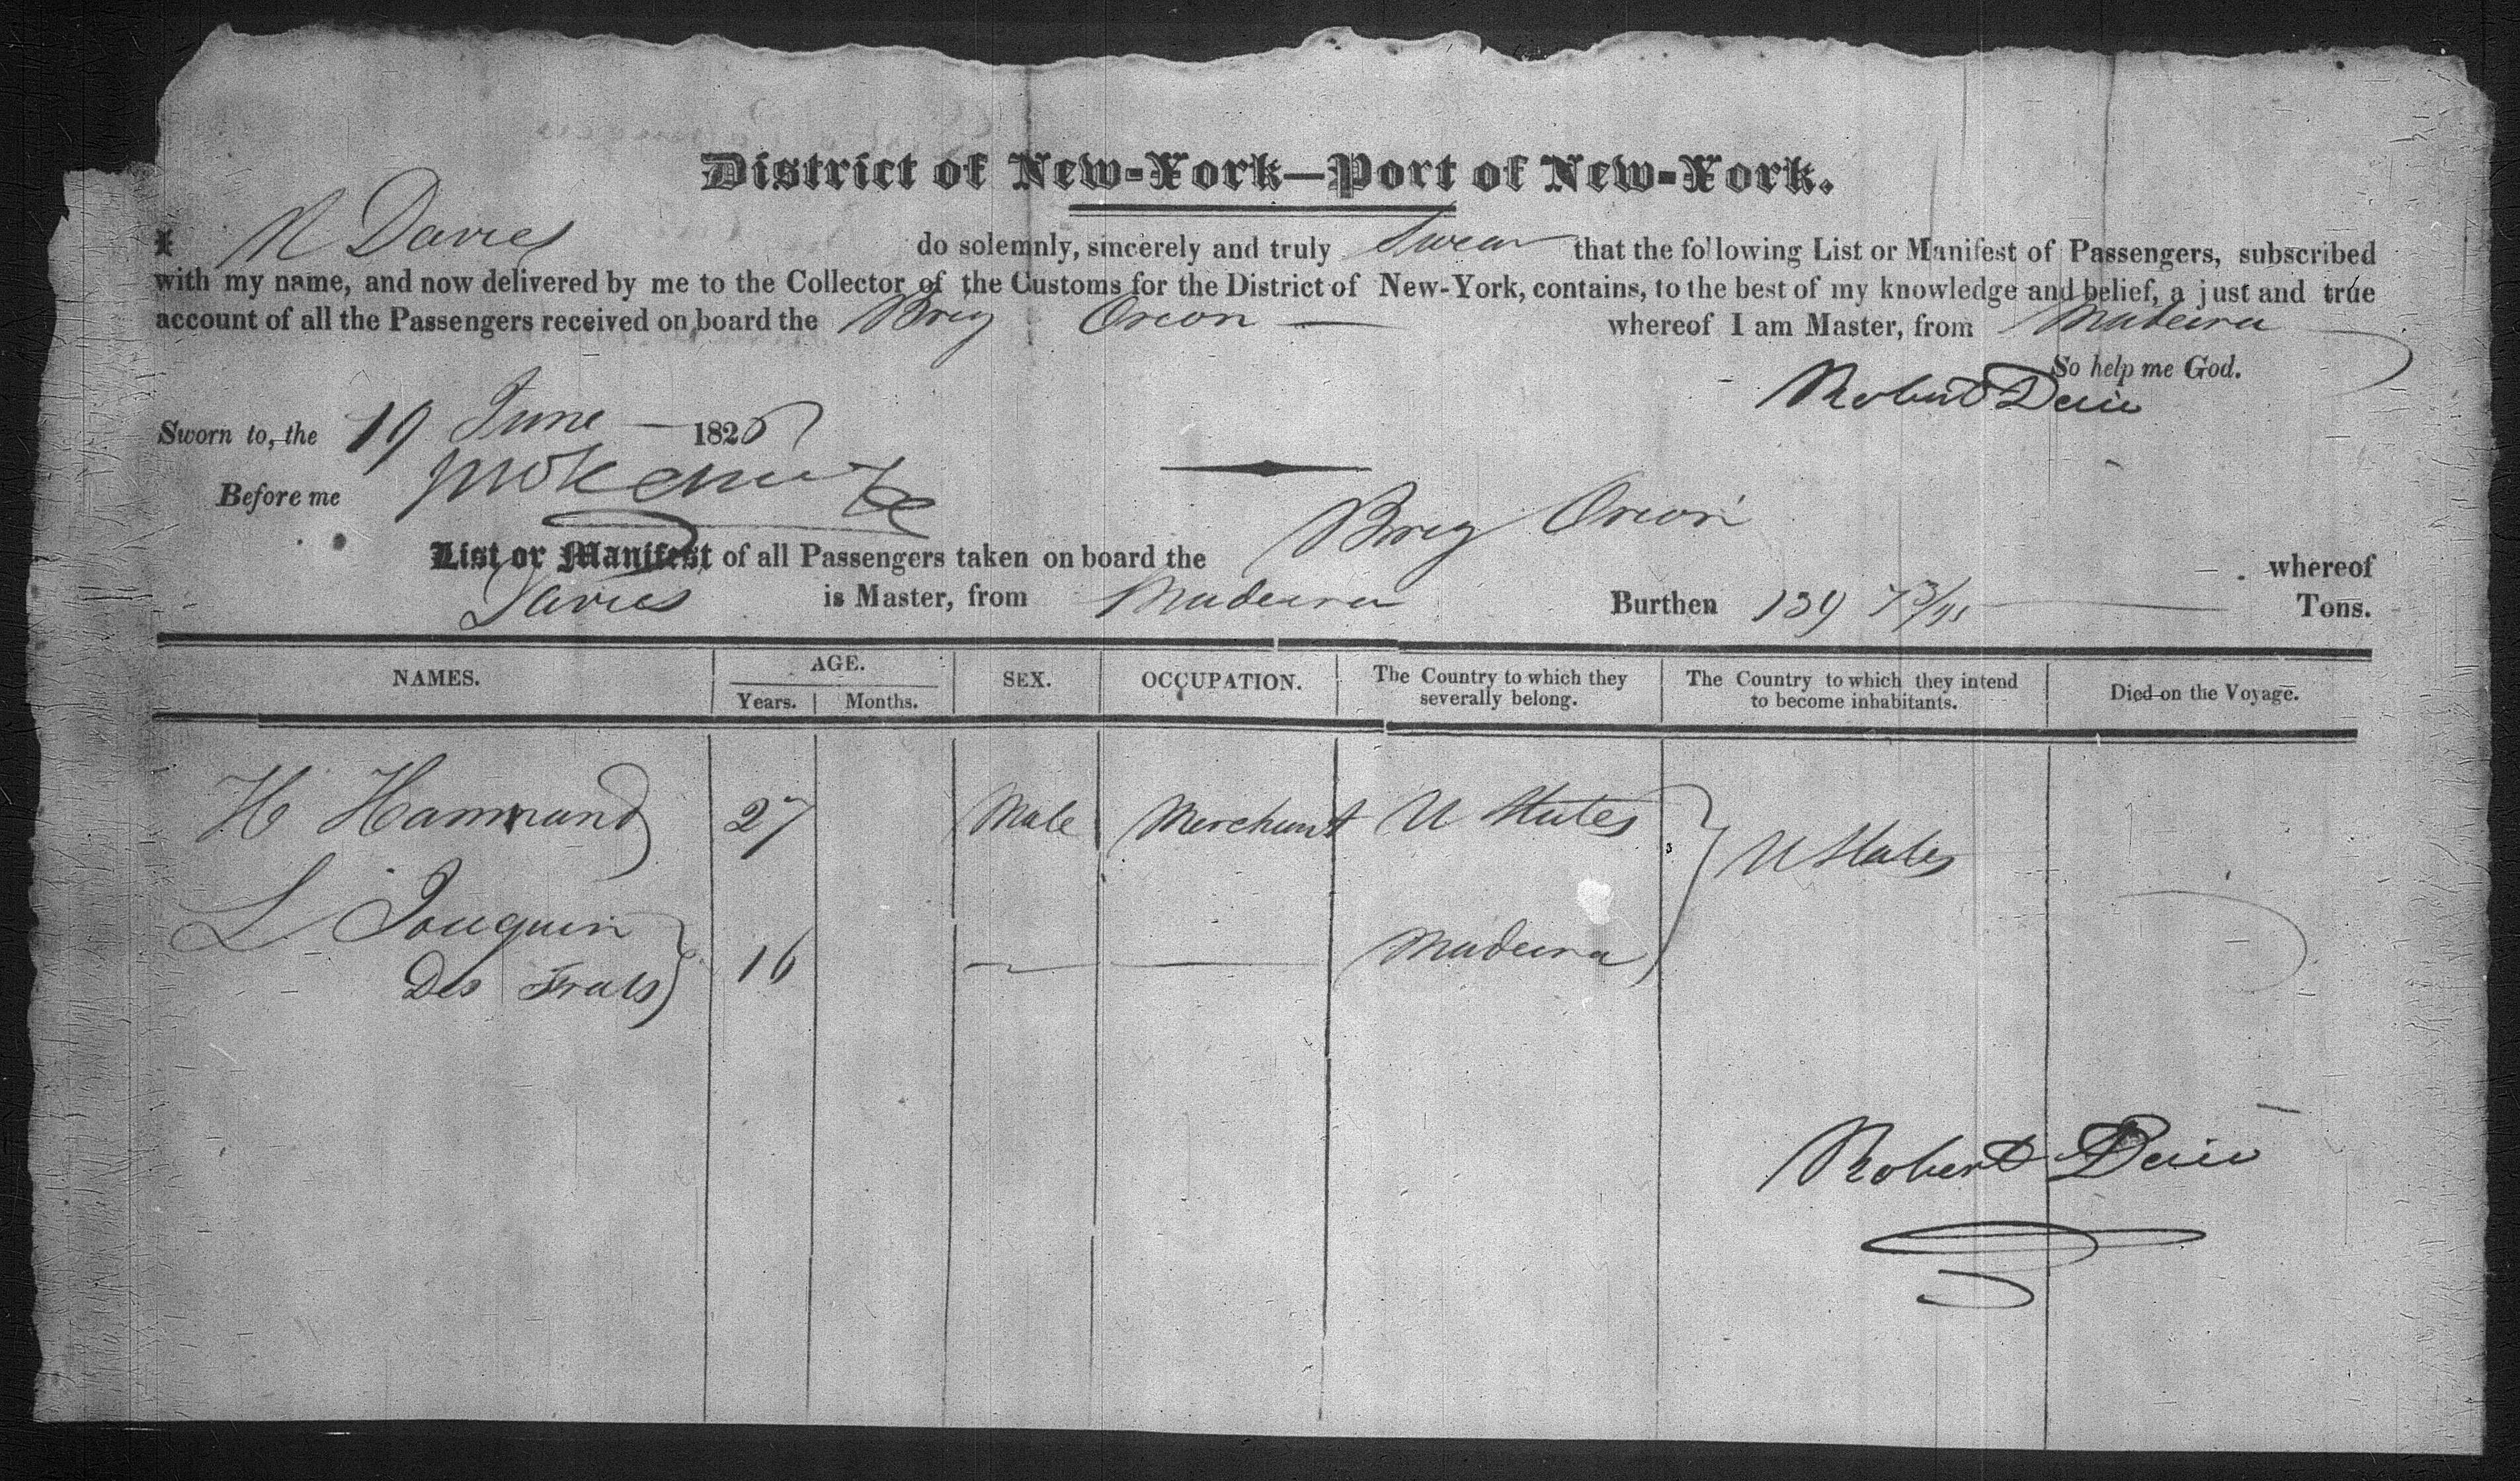 District of New-York—Port of New-York.
I R Davies do solemnly, sincerely and truly Swear that the following List or Manifest of Passengers, subscribed
with my name, and now delivered by me to the Collector of the Customs for the District of New-York, contains, to the best of my knowledge and belief, a just and true
account of all the Passengers received on board the Brig Orion — whereof I am Master, from Madeira
So help me God.
Robert
Sworn to, the 19 June — 1826
Before me
List or Manifest of all Passengers taken on board the Brig Orion whereof
Davies is Master, from Madeira Burthen 139 73/95 Tons.
NAMES. AGE. SEX. OCCUPATION. The Country to which they severally belong. The Country to which they intend to become inhabitants. Died on the Voyage.
Years. Months.
H Hammand 27 Male Merchant U States U States
L Jouquin
Des 16 — — Madeira
Robert